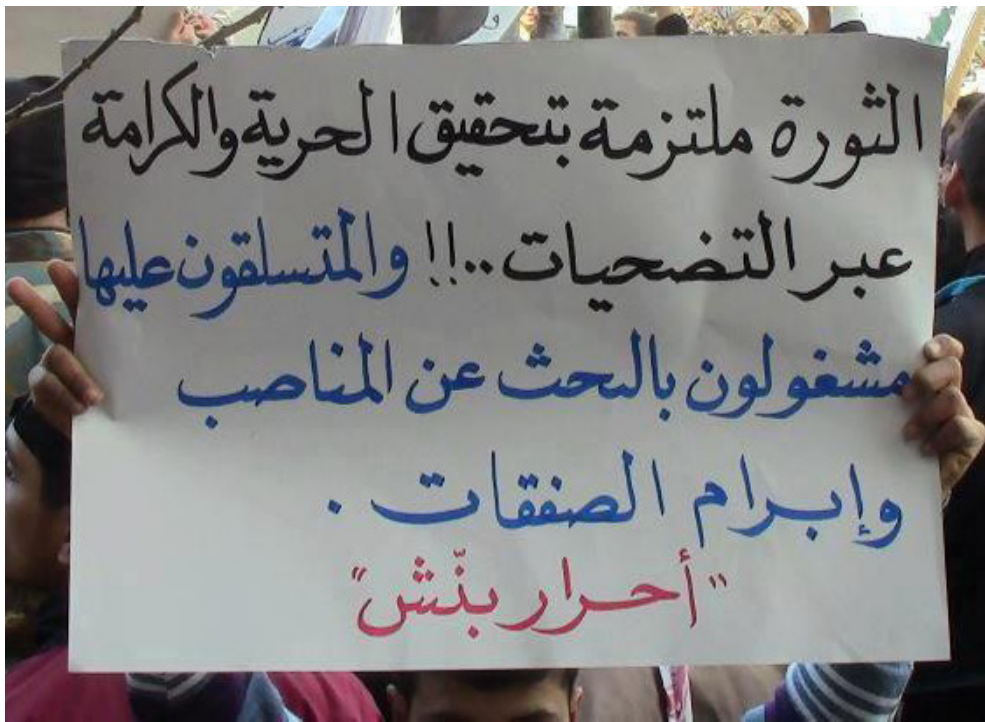 الثورة ملتزمة بتحقيق الحرية والكرامة
عبر التضحيات..!! والمتسلقون عليها
مشغولون بالبحث عن المناصب
وإبرام الصفقات .
"أحرار بنّش"